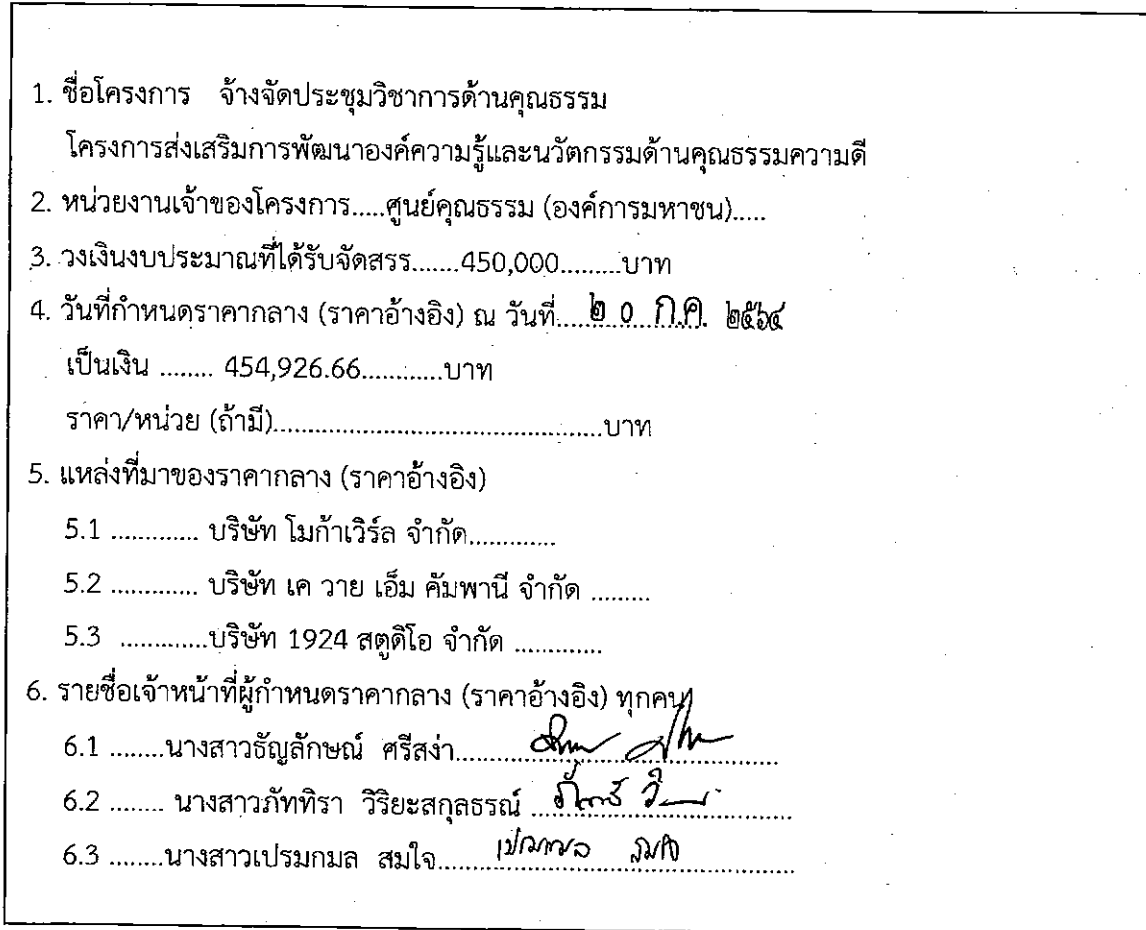 1. ชื่อโครงการ จ้างจัดประชุมวิชาการด้านคุณธรรม
โครงการส่งเสริมการพัฒนาองค์ความรู้และนวัตกรรมด้านคุณธรรมความดี
2. หน่วยงานเจ้าของโครงการ.....ศูนย์คุณธรรม (องค์การมหาชน).....
3. วงเงินงบประมาณที่ได้รับจัดสรร.......450,000.........บาท
4. วันที่กำหนดราคากลาง (ราคาอ้างอิง) ณ วันที่....๒๐ ก.ค. ๒๕๖๔
เป็นเงิน ........ 454,926.66............บาท
ราคา/หน่วย (ถ้ามี)..............................................บาท
5. แหล่งที่มาของราคากลาง (ราคาอ้างอิง)
5.1 ............. บริษัท โมก้าเวิร์ล จำกัด.............
5.2 ............. บริษัท เค วาย เอ็ม คัมพานี จำกัด .........
5.3 .............บริษัท 1924 สตูดิโอ จำกัด .............
6. รายชื่อเจ้าหน้าที่ผู้กำหนดราคากลาง (ราคาอ้างอิง) ทุกคน
6.1 ........นางสาวธัญลักษณ์ ศรีสง่า.............
6.2 ........ นางสาวภัททิรา วิริยะสกุลธรณ์ .............
6.3 ........นางสาวเปรมกมล สมใจ........เปรมกมล สมใจ